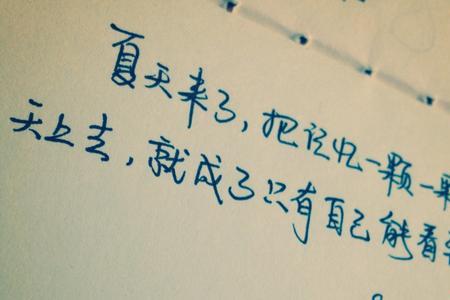 夏天来了,把记忆一颗一颗
天上去,就成了只有自己能看